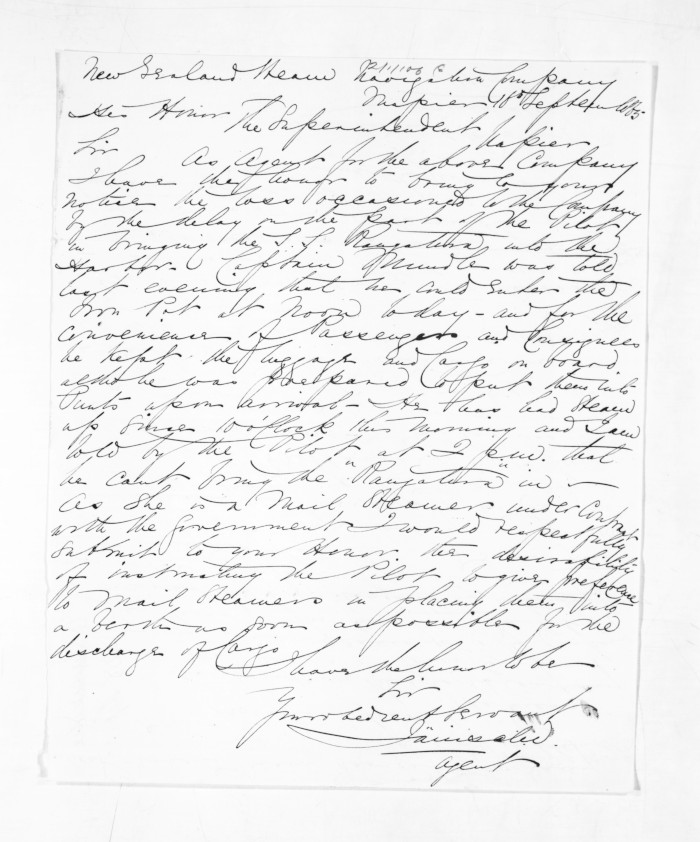 New Zealand Steam Navigation Company
Napier 18th Septem 1865
His Honor
The Superintendent
Napier
Sir
As Agent for the above Company
I have the honor to bring to your
notice the loss occasioned to the Company
by the delay on the part of the Pilot
in bringing the S.S. Rangatira into the
Harbor. Captain Mundle was told
last evening that he could enter the
Iron Pot at noon today - and for the
convenience of Passengers and Consignees
he kept the luggage and Cargo on board
altho he was prepared to put them into
Punts upon arrival - He has had Steam
up since 10 o'Clock this morning and I am
told by the Pilot at 2 p.m. that
he cant bring the "Rangatira" in -
As she is a Mail Steamer under Contract
with the Government I would respectfully
submit to your Honor the desirability
of instructing the Pilot to give preference
to Mail Steamers in placing them into
a berth as soon as possible for the
discharge of Cargo
I have the honor to be
Sir
Your obedient Servant
Agent